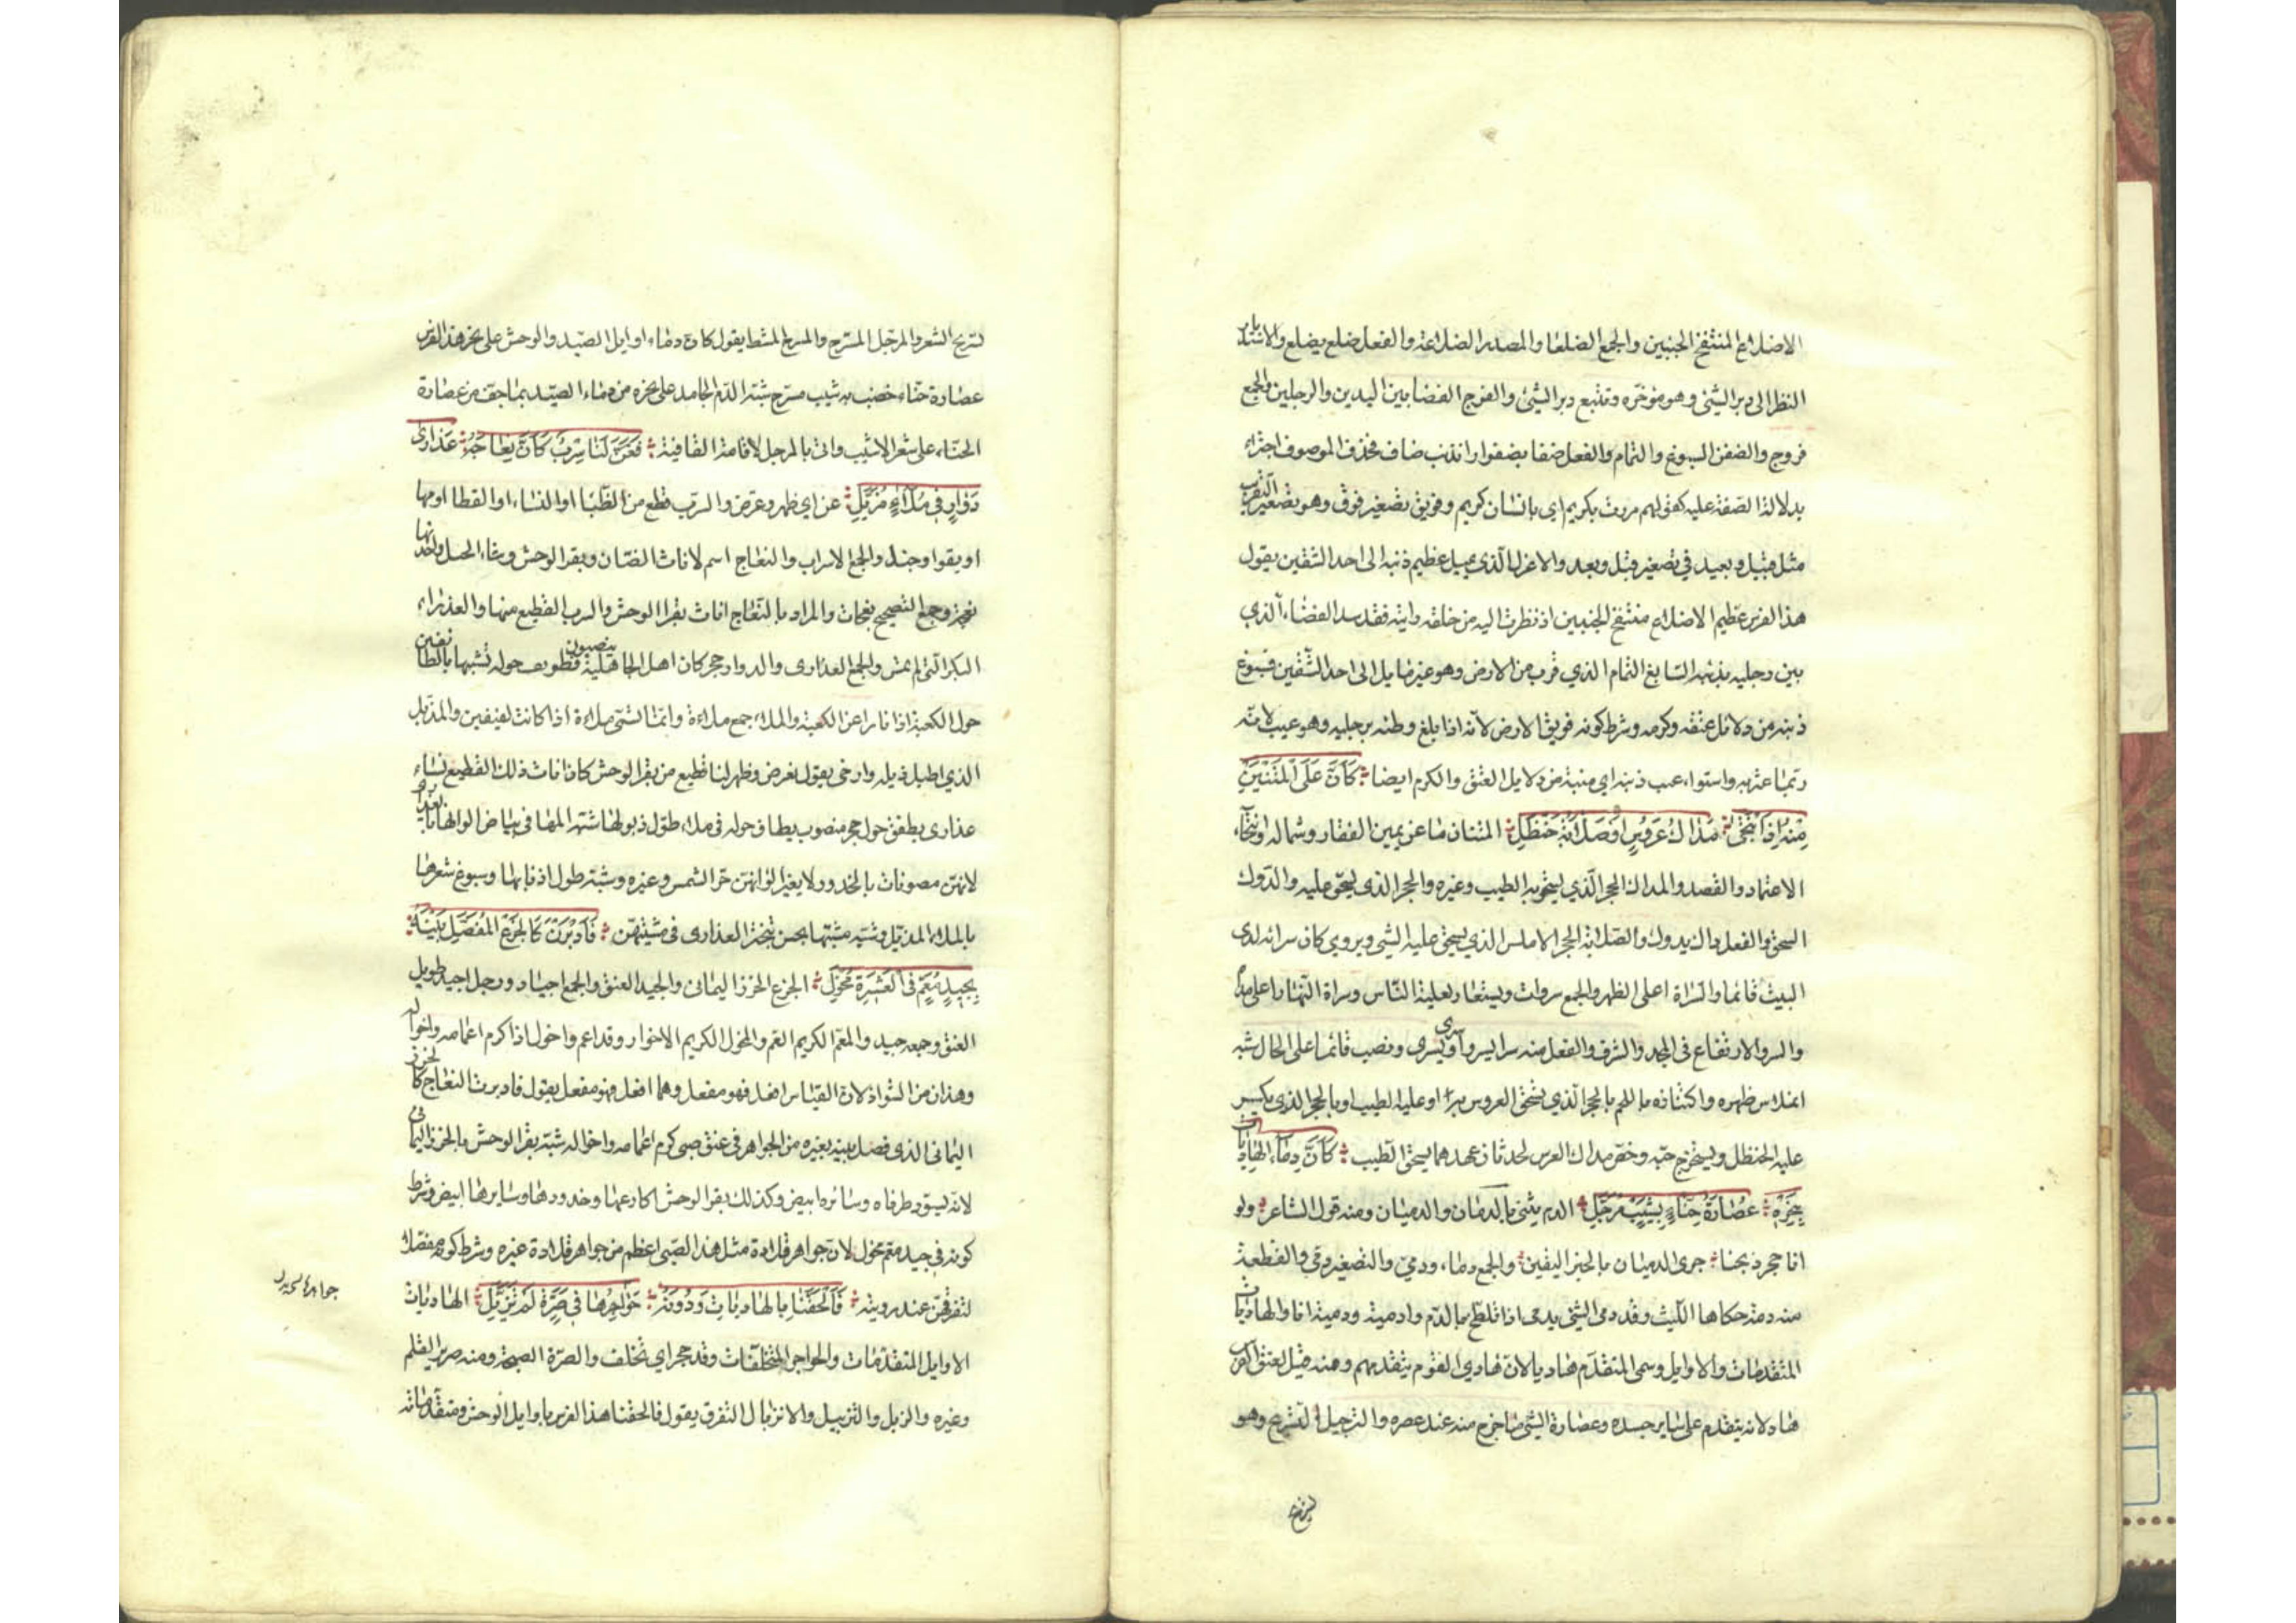 الاضلاع المنتفخ الجنبين والجمع الضلعا والمصدر الضلاعة والفعل ضلع يضلع والاستدبار
النظر الى دبر الشئ وهو مؤخره وتتبع دبر الشئ والفرج الفضا بين اليدين والرجلين والجمع
فروج والضفن السبوغ والتمام والفعل ضفا يضفو اراد بذنب ضاف فحذف الموصوف اجتزاء
بدلالة الصفة عليه كقولهم مررت بكريم اي بانسان كريم وفويق تصغير فوق وهو تصغير التقريب
مثل قبيل وبعيد في تصغير قبل وبعد والاعزل الذي يميل عظيم ذنبه الى احد الشقين يقول
هذا الفرس عظيم الاضلاع منتفخ الجنبين اذ نظرت اليه من خلفه رايته فقد سد الفضاء الذي
بين رجليه بذنبه السابغ التمام الذي قرب من الارض وهو غير مايل الى احد الشقين فسبوغ
ذنبه من دلائل عتقه وكرمه وشرط كونه فويق الارض لانه اذا بلغ وطئه برجليه وهو عيب لانه
ربما عثر به واستواء عسب ذنبه اي منبته من دلايل العتق والكرم ايضا كَاَنَّ عَلَى الْمَتْنَيْنِ
مِنْهُ اِذَا انْتَحَى مَدَاكُ عَرُوسٍ اَوْ صَلَايَةُ حَنْظَلِ المتنان ما عن يمين الفقار وشماله والانتحاء
الاعتماد والقصد والمداك الحجر الذي يسحق به الطيب وغيره والحجر الذي يسحق عليه والدوك
السحق والفعل داك يدوك والصلاية الحجر الاملس الذي يسحق عليه الشي ويروي كان سراته لدى
البيت قائما والسراة اعلى الظهر والجمع سروات ويستعار لعلية الناس وسراة النهار اعلى مداه
والسرو الارتفاع في المجد والشرف والفعل منه سرا يسرو وسرى يسرى ونصب قائما على الحال شبه
انملاس ظهره واكتنازه باللحم بالحجر الذي يسحق العروس به او عليه الطيب او بالحجر الذي يكسر
عليه الحنظل ويستخرج حبه وخص مداك العرس لحدثان عهدهما بسحق الطيب كَاَنَّ دِمَاءَ الْهَادِيَاتِ
بِنَحْرِهِ عُصَارَةُ حِنَّاءٍ بِشَيْبٍ مُرَجَّلِ الدم يثنى بالدمان والدميان ومنه قول الشاعر ولو
انا حجر ذبحنا جرى الدميان بالخبر اليقين والجمع دماء ودمي والتصغير دمي والقطعة
منه دمة حكاها الليث وقد دمى الشئ يدمى اذا تلطخ بالدم وادميته ودميته انا والهاديات
المتقدمات والاوايل وسمى المتقدم هاديا لان هادي القوم يتقدمهم ومنه قيل لعنق الفرس
هاد لانه يتقدم على ساير جسده وعصارة الشئ ما خرج منه عند عصره والترجيل التسريح وهو
لتسريح الشعر والمرجل المسرح والمسرح المشط يقول كان دماء اوايل الصيد والوحش على نحر هذا الفرس
عصارة حناء خضب به شيب مسرح شبه الدم الجامد على نحره من دماء الصيد بما جف من عصارة
الحناء على شعر الاشيب واتى بالمرجل لاقامة القافية فَعَنَّ لَنَا سِرْبٌ كَاَنَّ نِعَاجَهُ عَذَارَى
دَوَارٍ فِي مُلَاءٍ مُذَيَّلِ عن اي ظهر وعرض والسرب قطع من الظبا او النساء او القطا او مها
او بقر او خيل والجمع الاسراب والنعاج اسم لاناث الضان وبقر الوحش وشاء الجبل واحدتها
نعجة وجمع التصحيح نعجات والمراد بالنعاج اناث بقر الوحش والسرب القطيع منها والعذراء
البكر التي لم تمس والجمع العذارى والدوار حجر كان اهل الجاهلية ينصبونه ويطوفون حوله تشبها بالطائفين
حول الكعبة اذا ناءوا عن الكعبة والملاء جمع ملاءة وانما تسمى ملاءة اذا كانت لفيفين والمذيل
الذي اطيل ذيله وارخى يقول فعرض وظهر لنا قطيع من بقر الوحش كان اناث ذلك القطيع نساء
عذارى يطفن حول حجر منصوب يطاف حوله في ملاء طول ذيولها شبه المها في بياض الوانها بالعذارى
لانهن مصونات بالخدور لا يغير الوانهن حر الشمس وغيره وشبه طول اذنابها وسبوغ شعرها
بالملاء المذيل وشبه مشيها بحسن تبختر العذارى في مشيتهن فَاَدْبَرْنَ كَالْجَزْعِ الْمُفَصَّلِ بَيْنَهُ
بِجِيدِ مُعَمٍّ فِي الْعَشِيرَةِ مُخْوَلِ الجزع الخرز اليمانى والجيد العنق والجمع اجياد ورجل اجيد طويل
العنق وجمعه جيد والمعم الكريم العم والمخول الكريم الاخوال وقد اعم واخول اذا كرم اعمامه واخواله
وهذان من الشواذ لان القياس افعل فهو مفعل وهما افعل فهو مفعل يقول فادبرت النعاج كالخرز
اليمانى الذي فصل بينه بغيره من الجواهر في عنق صبى كرم اعمامه واخواله شبه بقر الوحش بالخرز اليمانى
لانه يسود طرفاه وسائره ابيض وكذلك بقر الوحش اكارعها وخدودها وسايرها ابيض وشرط
كونه في جيد معم مخول لان جواهر قلادة مثل هذا الصبى اعظم من جواهر قلادة غيره وشرط كونه مفصلا
لتفرقهن عند رويته فَاَلْحَقَنَا بِالْهَادِيَاتِ وَدُونَهُ جَوَاحِرُهَا فِي صَرَّةٍ لَمْ تَزَيَّلِ الهاديات
الاوايل المتقدمات والجواحر المتخلفات وقد جحر اي تخلف والصرة الصيحة ومنه صرير القلم
وغيره والزيل والتزييل والانزيال التفرق يقول فالحقنا هذا الفرس باوايل الوحش ومتقدماته